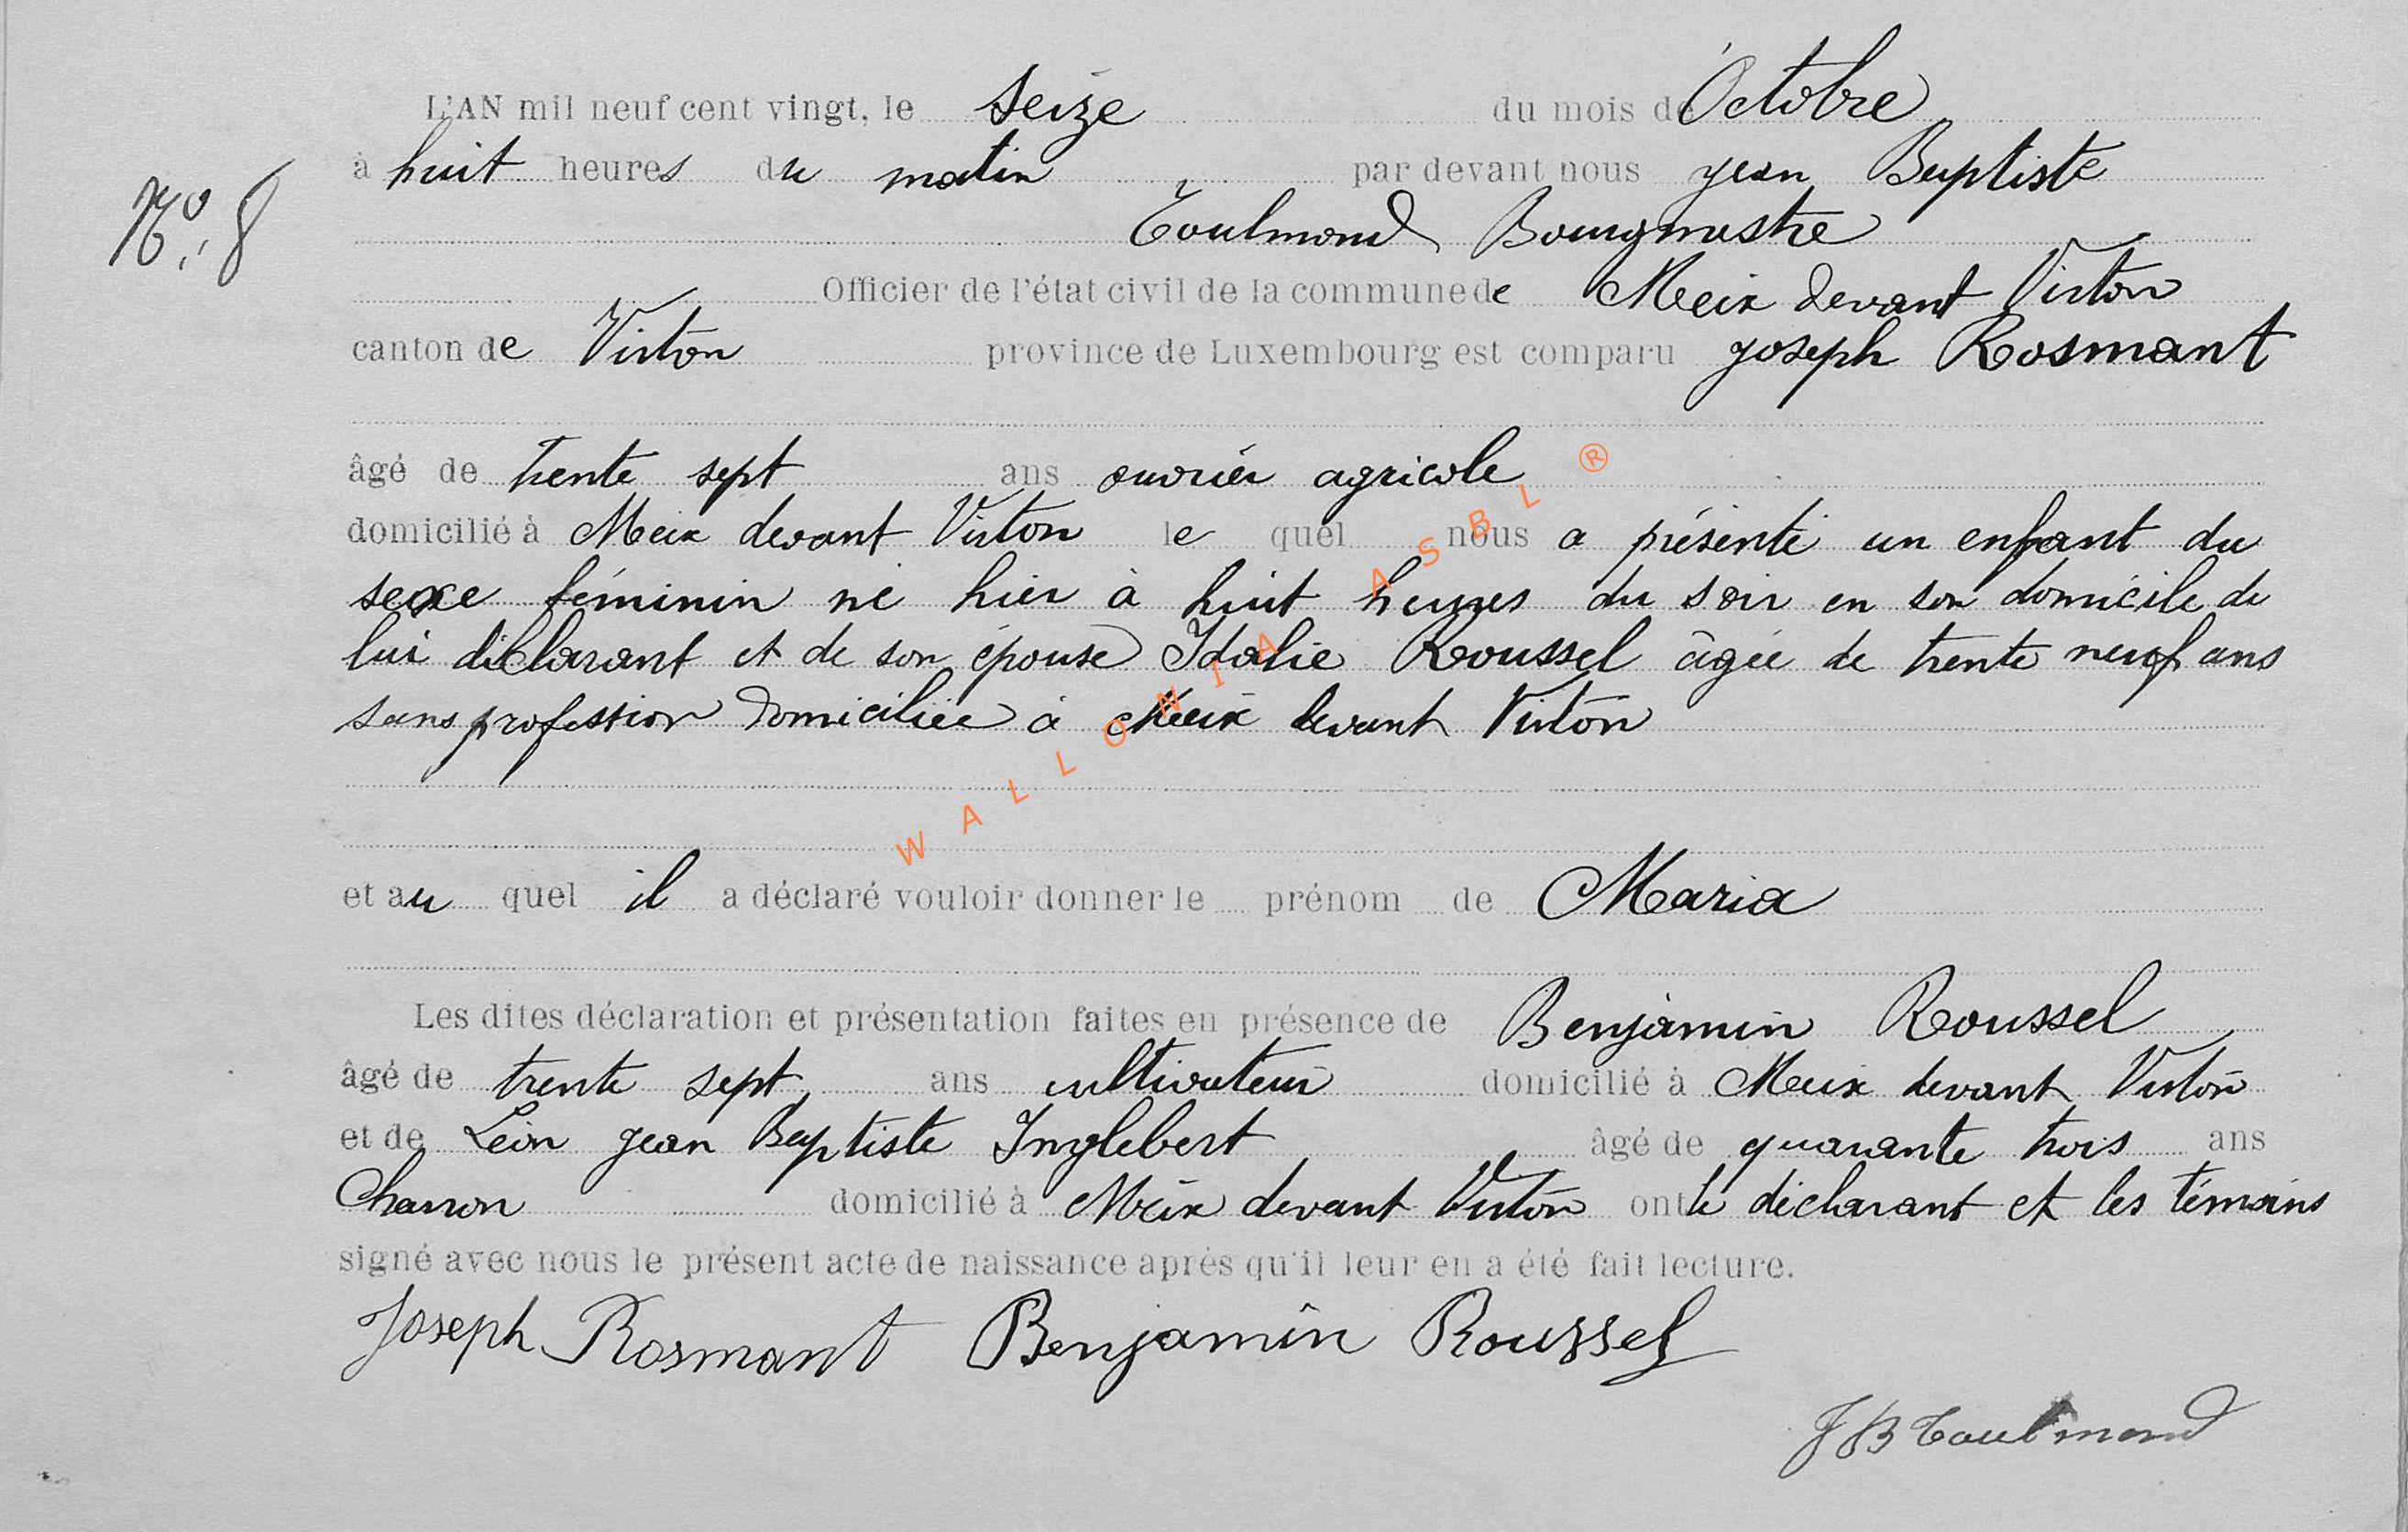 L'AN mil neuf cent vingt, le seize du mois de Octobre
à huit heures du matin par devant nous Jean Baptiste
N° 8
Toulmond Bourgmestre
Officier de l'état civil de la commune de Meix devant Virton
canton de Virton province de Luxembourg est comparu Joseph Rosmant
âgé de trente sept ans ouvrier agricole
domicilié à Meix devant Virton le quel nous a présenté un enfant du
sexe féminin né hier à huit heures du soir en son domicile de
lui déclarant et de son épouse Idalie Roussel âgée de trente neuf ans
sans profession domiciliée à Meix devant Virton
et au quel il a déclaré vouloir donner le prénom de Maria
Les dites déclaration et présentation faites en présence de Benjamin Roussel
âgé de trente sept ans cultivateur domicilié à Meix devant Virton
et de Léon Jean Baptiste Inglebert âgé de quarante trois ans
Charron domicilié à Meix devant Virton ont le déclarant et les témoins
signé avec nous le présent acte de naissance après qu'il leur en a été fait lecture.
Joseph Rosmant Benjamin Roussel
JB Toulmond
WALLONIA ASBL ®